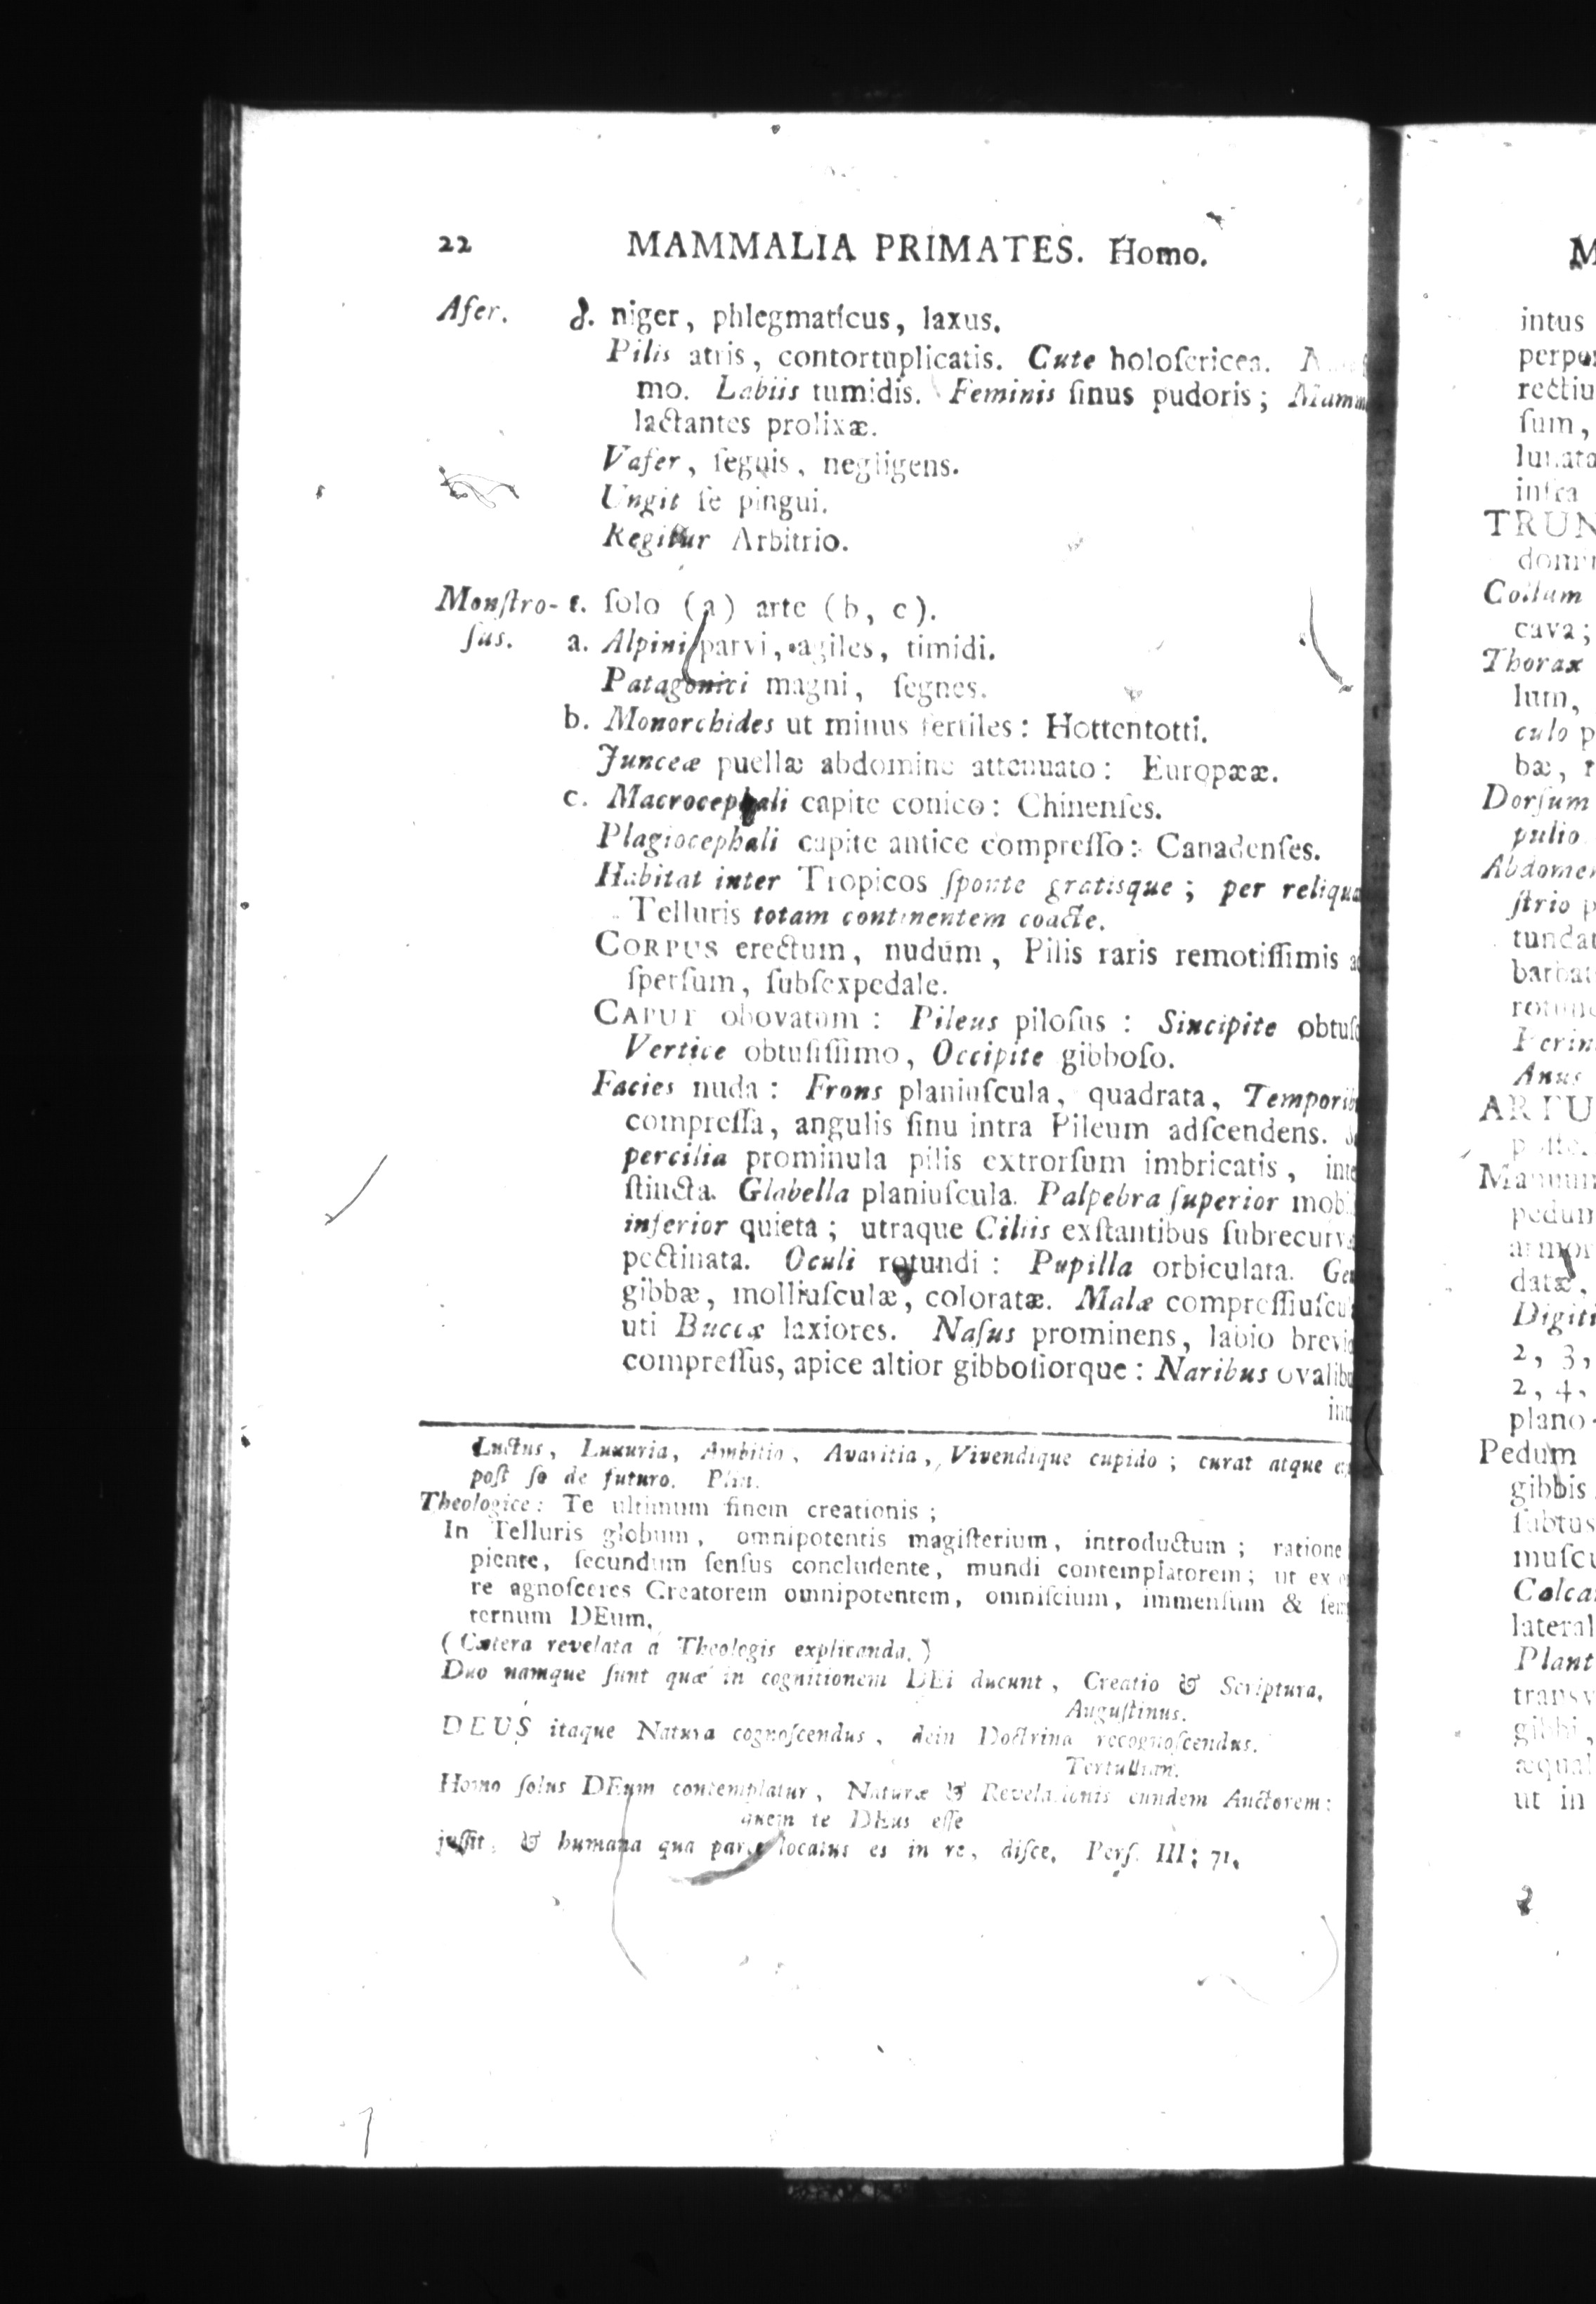 22 MAMMALIA PRIMATES. Homo.
Afer. δ. niger, phlegmaticus, laxus.
Pilis atris, contortuplicatis. Cute holoſericea.
mo. Labiis tumidis. Feminis ſinus pudoris; Mamm
lactantes prolixæ.
Vafer, ſegnis, negligens.
Ungit ſe pingui.
Regitur Arbitrio.
Monſtro- ε. ſolo (a) arte (b, c).
ſus. a. Alpini parvi, agiles, timidi.
Patagonici magni, ſegnes.
b. Monorchides ut minus fertiles: Hottentotti.
Junceæ puellæ abdomine attenuato: Europææ.
c. Macrocephali capite conico: Chinenſes.
Plagiocephali capite antice compreſſo: Canadenſes.
Habitat inter Tropicos ſponte gratisque; per reliqua
Telluris totam continentem coacte.
CORPUS erectum, nudum, Pilis raris remotiſſimis ad
ſperſum, ſubſexpedale.
CAPUT obovatum: Pileus piloſus: Sincipite obtuſo
Vertice obtuſiſſimo, Occipite gibboſo.
Facies nuda: Frons planiuſcula, quadrata, Temporib
compreſſa, angulis ſinu intra Pileum adſcendens.
percilia prominula pilis extrorſum imbricatis, inte
ſtincta. Glabella planiuſcula. Palpebra ſuperior mobi
inferior quieta; utraque Ciliis exſtantibus ſubrecurva
pectinata. Oculi rotundi: Pupilla orbiculata. Gen
gibbæ, molliuſculæ, coloratæ. Malæ compreſſiuſcul
uti Buccæ laxiores. Naſus prominens, labio brevio
compreſſus, apice altior gibboſiorque: Naribus ovalibu
int
Luctus, Luxuria, Ambitio, Avaritia, Vivendique cupido; curat atque
poſt ſe de futuro. Plin.
Theologice: Te ultimum finem creationis;
In Telluris globum, omnipotentis magiſterium, introductum; ratione
piente, ſecundum ſenſus concludente, mundi contemplatorem; ut ex o
re agnoſceres Creatorem omnipotentem, omniſcium, immenſum & ſem
ternum DEum.
(Cætera revelata a Theologis explicanda.)
Duo namque ſunt quæ in cognitionem DEi ducunt, Creatio & Scriptura.
Auguſtinus.
DEUS itaque Natura cognoſcendus, dein Doctrina recognoſcendus.
Tertullian.
Homo ſolus DEum contemplatur, Naturæ & Revelationis eundem Auctorem:
quem te DEus eſſe
juſſit, & humana qua parte locatus es in re, diſce. Perſ. III; 71.
M
intus
rectiu
ſum,
lunata
infra
TRUN
Collum
cava;
Thorax
lum,
culo p
bæ, r
Dorſum
pulio
Abdomen
ſtrio p
tundat
barbat
Perin
Anus
ARTU
Manuum
pedum
armor
datæ,
Digiti
2, 3,
2, 4,
plano-
Pedum
gibbis
ſubtus
muſcu
Calca
lateral
Plant
transv
gibbi,
æqual
ut in